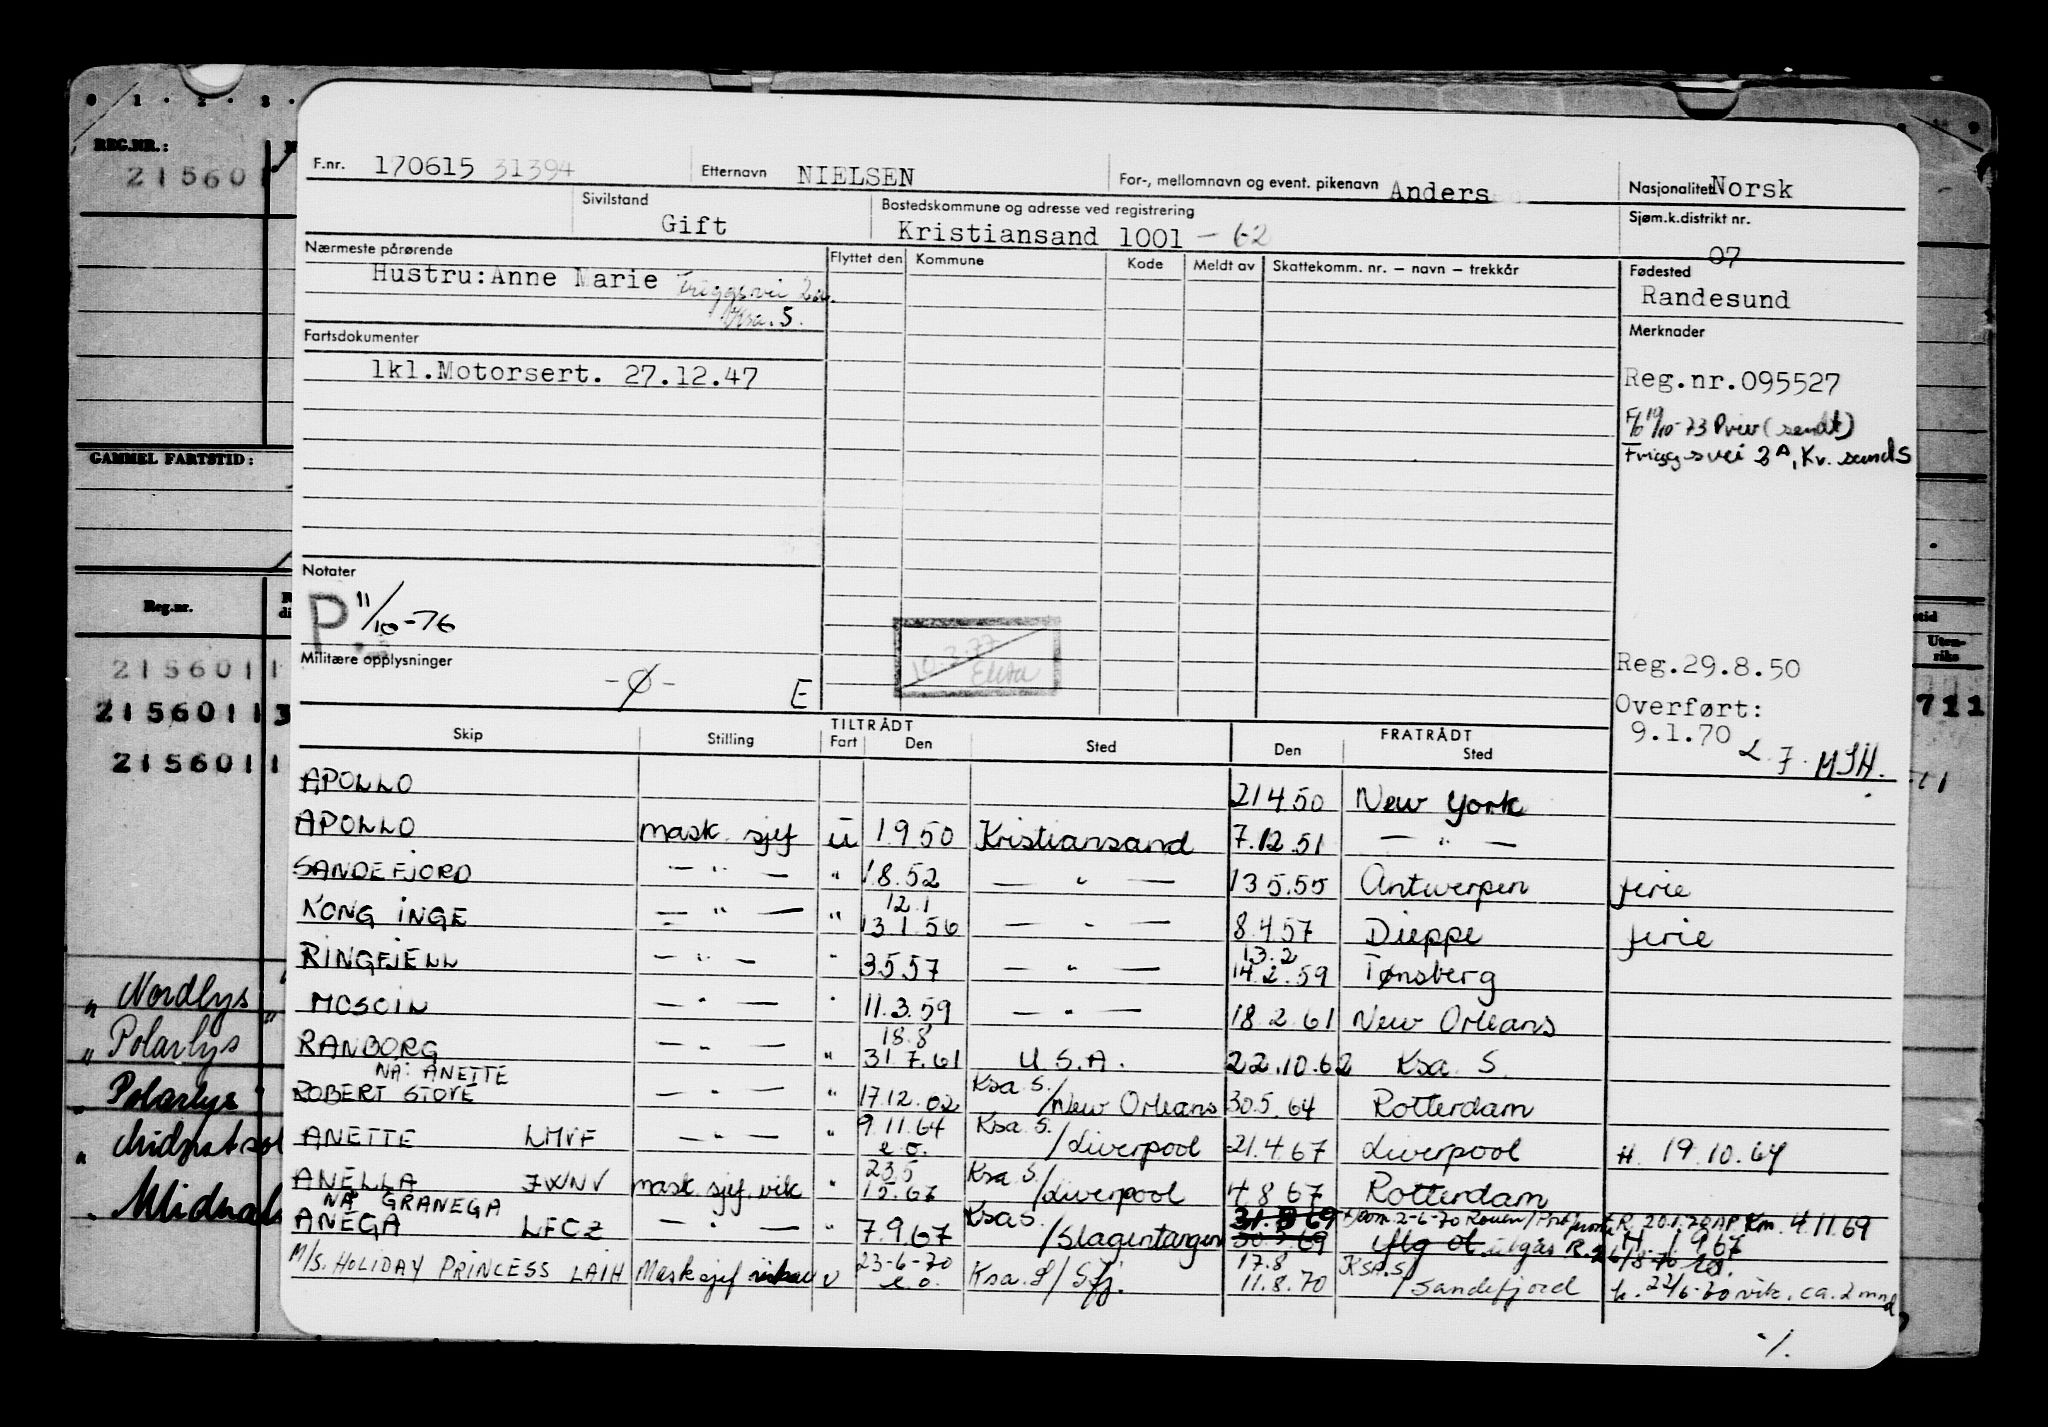 0 1 · 2 · 3 ·
REG.NR.:
215601
F.nr. 170615 31394 Etternavn NIELSEN For-, mellomnavn og event. pikenavn Anders Nasjonalitet Norsk
Sivilstand Gift Bostedskommune og adresse ved registrering Kristiansand 1001 - 62 Sjøm.k.distrikt nr. 07
Nærmeste pårørende Flyttet den Kommune Kode Meldt av Skattekomm. nr. – navn – trekkår Fødested
Hustru: Anne Marie Friggsvei 2a. Randesund
Ksa. S.
Fartsdokumenter Merknader
1kl.Motorsert. 27.12.47 Reg.nr.095527
19/10-73 Priv (sendt)
Friggsvei 2A, Kv. sand S
GAMMEL FARTSTID:
Notater
P. 11/10-76
10.2.77
Militære opplysninger
-Ø- E
Reg.29.8.50
Overført:
9.1.70
L.7. MSH.
Reg.nr.
Uten-
riks
2156011
21560113 711
2156011
TILTRÅDT FRATRÅDT
Skip Stilling Fart Den Sted Den Sted
APOLLO 21 4 50 New York
APOLLO mask. sjef u 1 9 50 Kristiansand 7.12.51 — " —
SANDEFJORD — " — " 1 8.52 — " — 13 5.55 Antwerpen ferie
KONG INGE — " — " 12.1 13 1.56 — " — 8.4.57 Dieppe ferie
RINGFJELL — " — " 3 5 57 — " — 13.2 14.2.59 Tønsberg
MOSDIN — " — " 11.3.59 — " — 18.2.61 New Orleans
RANBORG — " — " 18.8 31.7.61 U.S.A. 22.10.62 Ksa S.
NÅ: ANETTE
ROBERT STOVE — " — " 17.12.62 Ksa S./New Orleans 30.5.64 Rotterdam
ANETTE LMVF — " — " 9.11.64 e.o. Ksa S./Liverpool 21.4.67 Liverpool H. 19.10.64
ANELLA JWNV mask sjef. vik " 23.5 15.67 Ksa S./Liverpool 4.8 67 Rotterdam
NÅ GRANEGA
ANEGA LFCZ — " — " 7.9.67 Ksa S./Slagentangen 31.8 69 30.5.69 R. 20.1.70 AP Km. 4.11.69
H 1 9 67
M/S. HOLIDAY PRINCESS LAIH Masksjef vikar u 23-6-70 e.o. Ksa S/Sfj. 17.8 11.8.70 Ksa.S/Sandefjord h. 22/6-70 vik. ca. 2 mnd
·/.
" Nordlys "
" Polarlys "
" Polarlys "
" Midnatsol